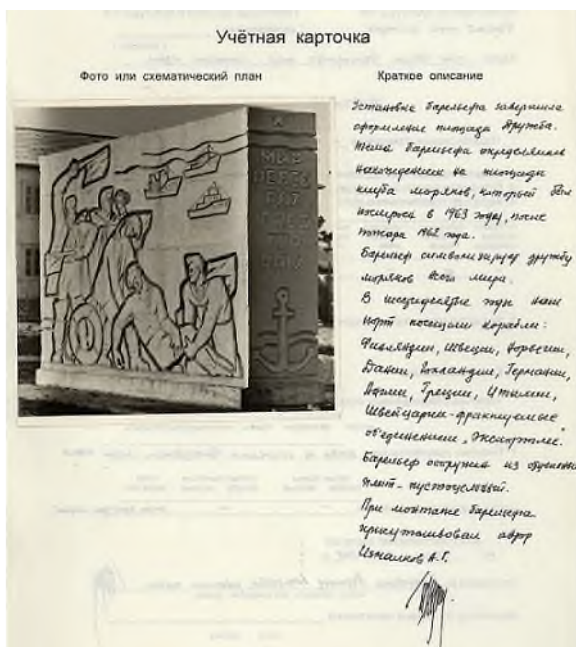 Учётная карточка
Фото или схематический план
Краткое описание
Установка барельефа завершила
оформление площади Дружба.
барельефа определялись
нахождением на площади
клуба моряков, который был
в 1963 году, после
пожара 1962 года.
Барельеф символизирует дружбу
моряков всего мира.
В шестидесятые годы наш
порт посещали корабли:
Финляндии, Швеции, Норвегии,
Дании, Голландии, Германии,
Англии, Греции, Италии,
Швейцарии-фрактуемые
объединением „Экспортлес".
Барельеф сооружен из
плит - пустотелый.
При монтаже барельефа
присутствовал автор
А.Г.
МИР